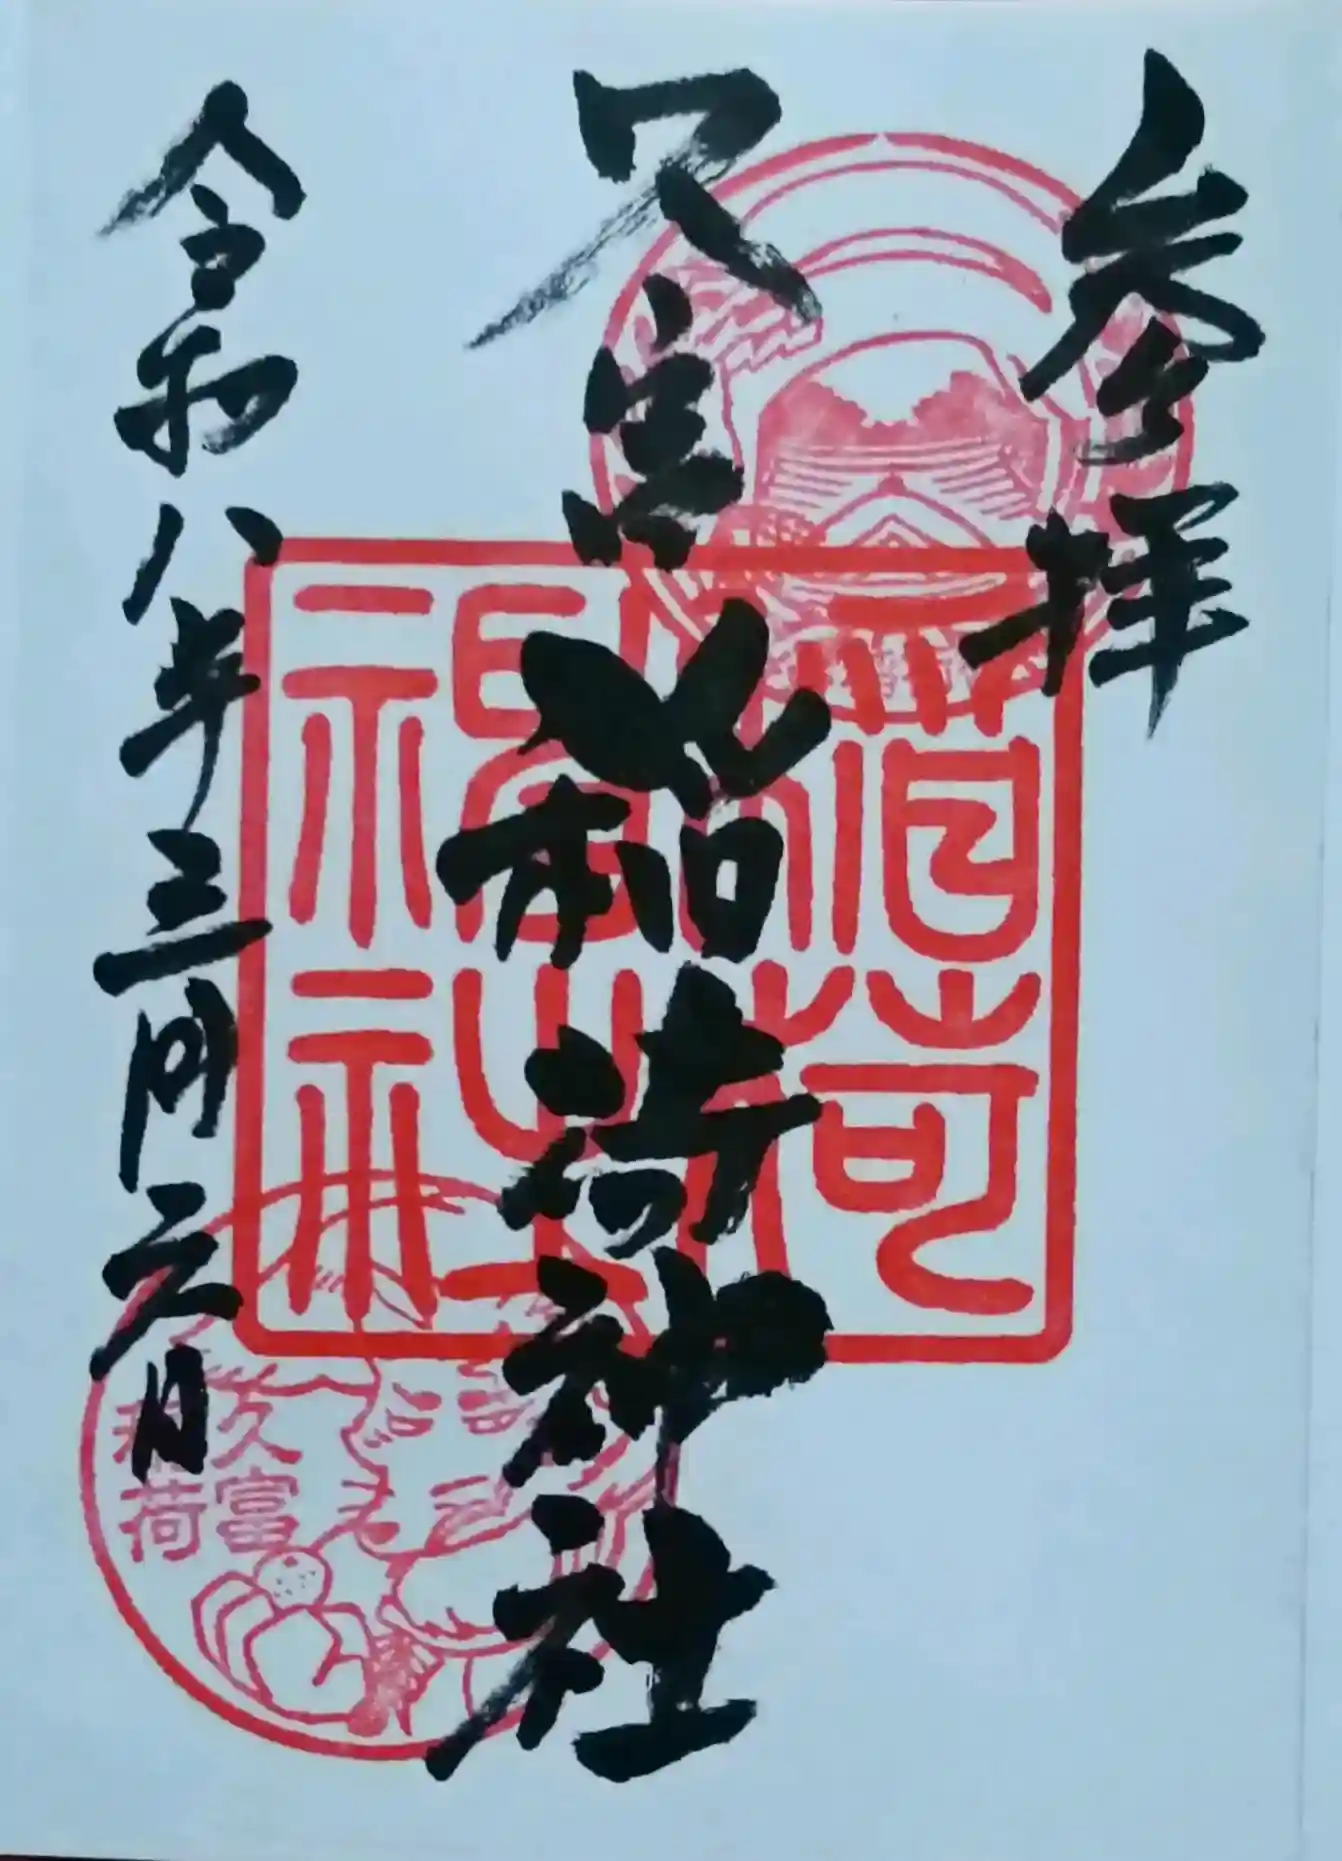 参拝
久富稲荷神社
令和八年三月六日
久富
稲荷